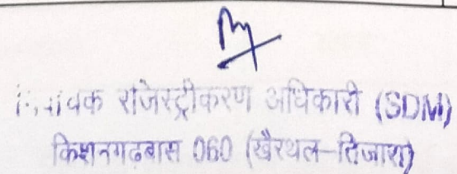 रजिस्ट्रीकरण अधिकारी (SDM)
किशनगढबास 060 (खैरथल-तिजारा)